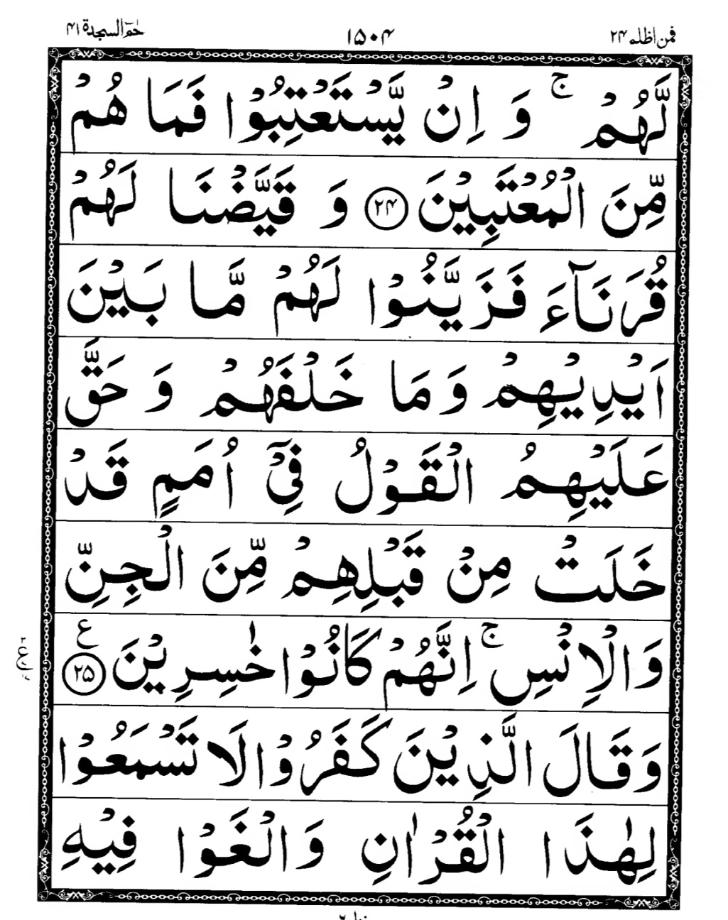 فمن اظلم ۲۴
۱۵۰۴
حٰمٓ السجدة ۴۱
لَّهُمْ ۚ وَ اِنْ يَّسْتَعْتِبُوْا فَمَا هُمْ
مِّنَ الْمُعْتَبِيْنَ ﴿۲۴﴾ وَ قَيَّضْنَا لَهُمْ
قُرَنَآءَ فَزَيَّنُوْا لَهُمْ مَّا بَيْنَ
اَيْدِيْهِمْ وَمَا خَلْفَهُمْ وَ حَقَّ
عَلَيْهِمُ الْقَوْلُ فِيْۤ اُمَمٍ قَدْ
خَلَتْ مِنْ قَبْلِهِمْ مِّنَ الْجِنِّ
وَالْاِنْسِ ۚ اِنَّهُمْ كَانُوْا خٰسِرِيْنَ ﴿۲۵﴾ ع
وَقَالَ الَّذِيْنَ كَفَرُوْا لَا تَسْمَعُوْا
لِهٰذَا الْقُرْاٰنِ وَالْغَوْا فِيْهِ